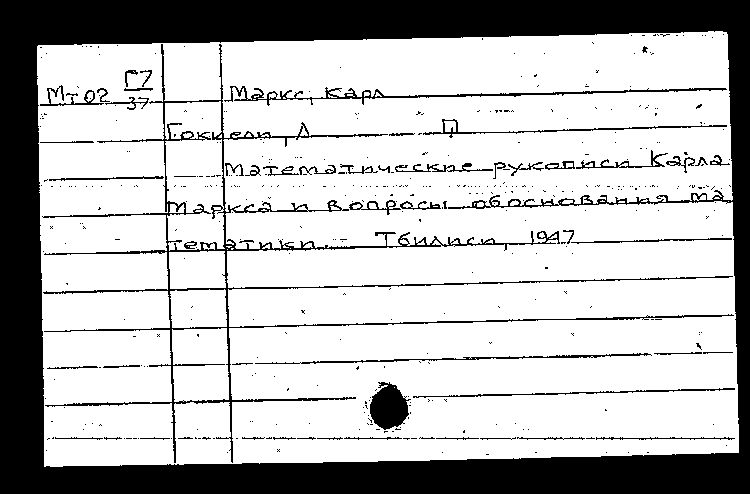 Мт02 Г7 Маркс, Карл
37
Гокиели, Л П
Математические рукописи Карла
Маркса и вопросы обоснования ма
тематики – Тбилиси, 1947